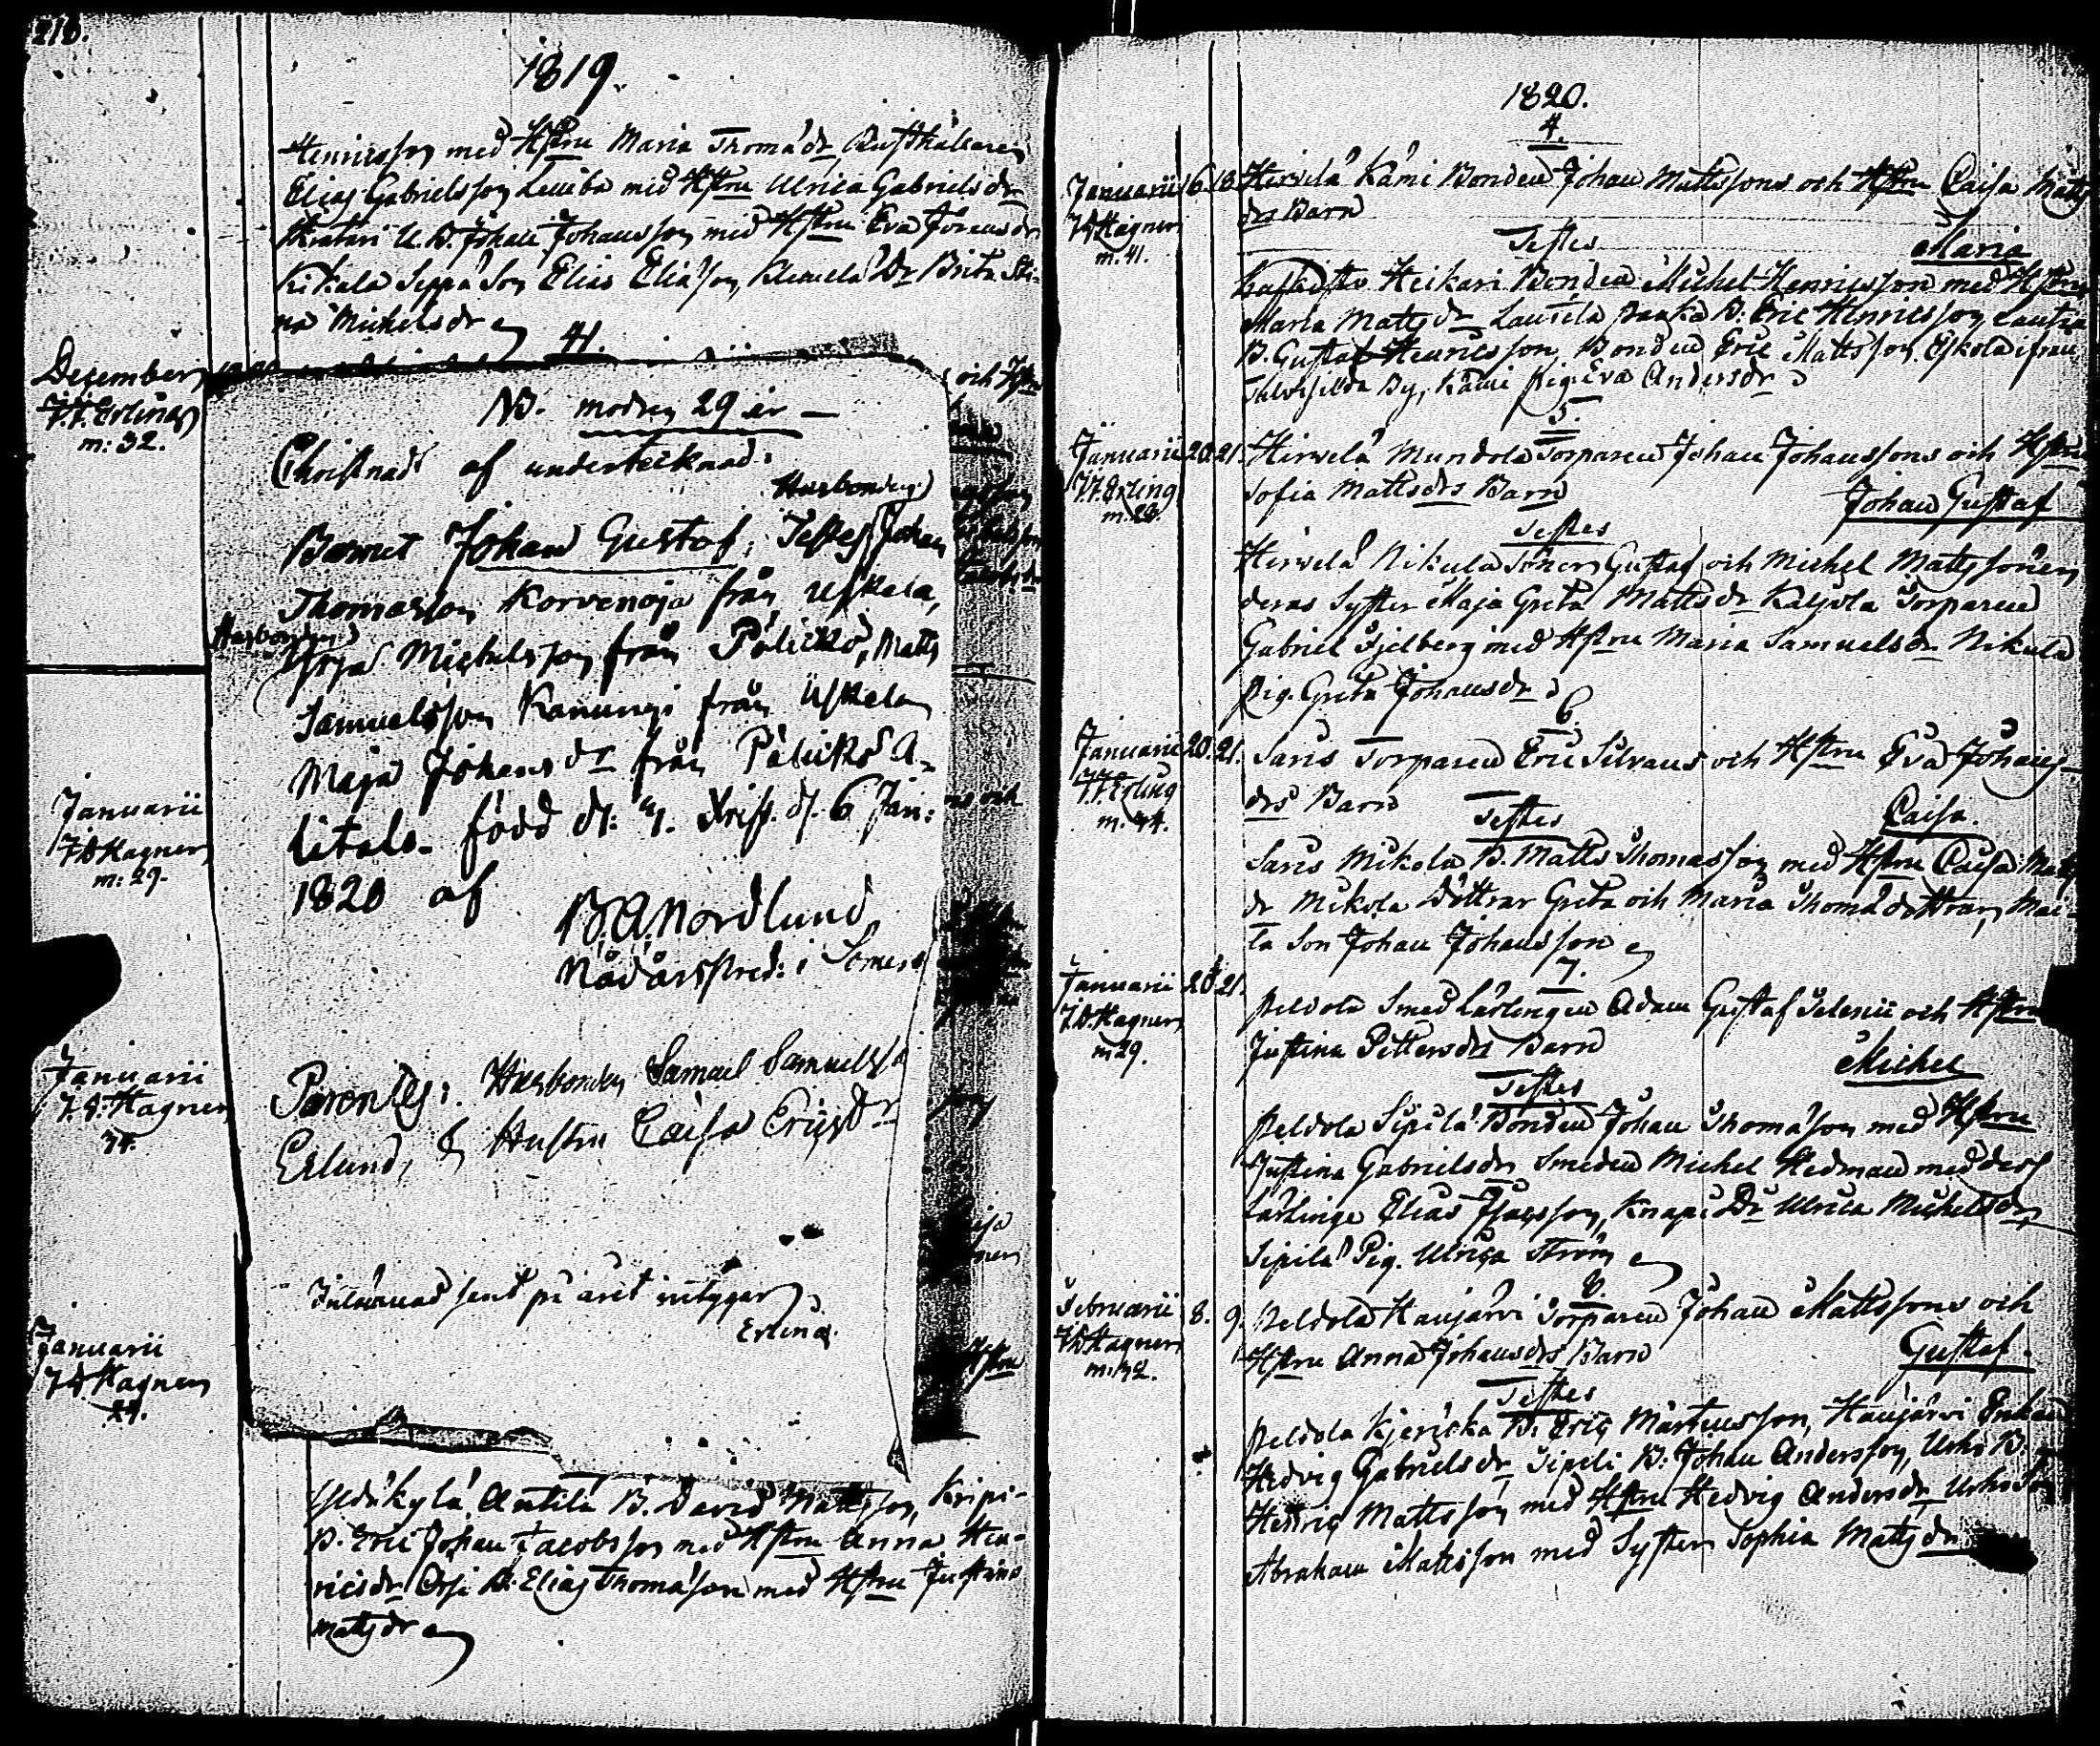 218.
1819.
Henricsson med Hstru Maria Thomädr, Rusthållaren
Elias Gabrielsson Leuiba med Hstru Ulrica Gabrielsdr
U. B. Johan Johansson med Hstru Eva Jöransdr
Kikala Seppä Son Elias Eliäson, Klemelä Dr Brita Sti-
na Michelsdr
41.
December
J. J. Erling
m: 32.
och Hstru
NB. modren 29 år
Christnadt af undertecknad:
Husbonden
Barnet Johan Gustaf; Testes, Johan
Thomasson Korvenoja från Uskela,
Husbonden
Yrjä Michelsson från Palikko, Matts
Samuelsson Kanungi från Uskela
Maja Johans dr från Palikko A-
litalo. född d: 4. Krist. d. 6 Jan:
1820 af
B. A. Nordlund,
Nådårspred: i Somero
Parentes: Husbonden Samuel Samuelss:
Erlund, & Hustru Caisa Ericsdr
Inlämnad sent på året intygar
Erling.
Januarii
J D Hagner
m: 29.
Januarii
J. D. Hagner
34.
Januarii
J D Hagner
29.
Yldäkylä Antila B. David Mattsson, Kripi-
B. Eric Johan Jacobsson med Hstru Anna Hen-
ricsdr Orsi B. Elias Thomäson med Hstru Justina
Mattsdr
1820.
4.
Januarii 6 8. Hirvelä Kämi Bonden Johan Mattssons och Hstru Caisa Matts
drs Barn
J D Hagner
m. 41.
Testes
Maria
Heikari Bonden Michel Henricsson med Hstru
Maria Mattsdr Lautela Paaka B: Eric Henricsson, Lautela
B. Gustaf Henricsson, Bonden Eric Mattsson Eskola ifrån
By, Kämi pig. Eva Andersdr
5.
Januarii 20. 21. Hirvelä Mundola Torparen Johan Johanssons och Hstru
J. J. Erling
m. 28.
Sofia Mattsdrs Barn
Johan Gustaf
Testes
Hirvelä Nikula Söner Gustaf och Michel Mattssöner
deras Syster Maja Greta Mattsdr Kaljola Torparen
Gabriel Sjelberg med Hstru Maria Samuelsdr Nikula
pig. Greta Johansdr
6.
Januarii 20. 21. Saris Torparen Eric Silvans och Hstru Eva Johans
J. J. Erling
m. 34.
drs Barn
Caisa.
Testes
Saris Mikola B. Matts Thomasson med Hstru Caisa Matts
dr Mikola Döttrar Greta och Maria Thomädöttrar, Mai-
la Son Johan Johansson
7.
Januarii 20 21. Peldola Smed Lärlingen Adam Gustaf Selenii och Hstru
J. D. Hagner
m 29.
Justina Pettersdrs Barn
Michel
Testes
Peldola Sipilä Bonden Johan Thomäson med Hstru
Justina Gabrielsdr Smeden Michel Hedman med dess
Lärlinge Elias Isacsson, Knapi Dr Ulrica Michelsdr
Sipilä Pig. Ulrica Ström
8.
Februarii 8. 9. Peldola Haujärvi Torparen Johan Mattssons och
J D Hagner
m. 32.
Hstru Anna Johansdrs Barn
Gustaf.
Testes
Peldola Kjericka B. Eric Mårtensson, Haujärvi Enkan
Hedvig Gabrielsdr Sipeli B: Johan Andersson, Urho B.
Henric Mattsson med Hstru Hedvig Andersdr Urho Son
Abraham Mattsson med Syster Sophia Mattsdr